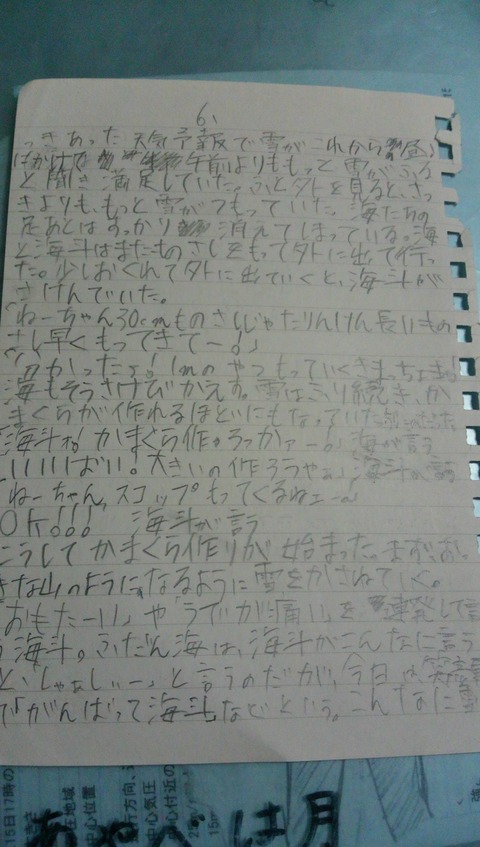 6、
っきあった天気予報で雪がこれから
午前よりももっと雪がふる
と聞き満足していた。ふと外を見ると、さっ
きよりも、もっと雪がつもっていた。海たちの
足あとはすっかり消えてしまっている。海
と海斗はまたものさしをもって外に出て行っ
た。少しおくれて外に出ていくと、海斗が
さけんでいた。
「ねーちゃん30cmものさしじゃたりんけん長いもの
さし早くもってきてー!」
「わかったよ!1mのやつもっていくさ、ちょまち」
海もそうさけびかえす。雪はふり続き、か
まくらが作れるほどにもなっていた
「海斗ォ かまくら作ろっかァー。」海が言う
「いいばい。大きいの作ろうやぁ」海斗が言う
「ねーちゃん、スコップもってくるねェー。」
OK!!! 海斗が言う
こうしてかまくら作りが始まった。まずは、お
きな山のようになるように雪をかさねていく。
「おもたーい」や「うでが痛い」を連発して言
う海斗。ふだん海は、海斗がこんなに言う
と、しゃぁしぃー」と言うのだが、今日は
で「がんばって海斗」などという。こんなに
15日17時の
大きさ
存在地域
中心位置
進行方向、
中心気圧
中心付近の
15m
は月